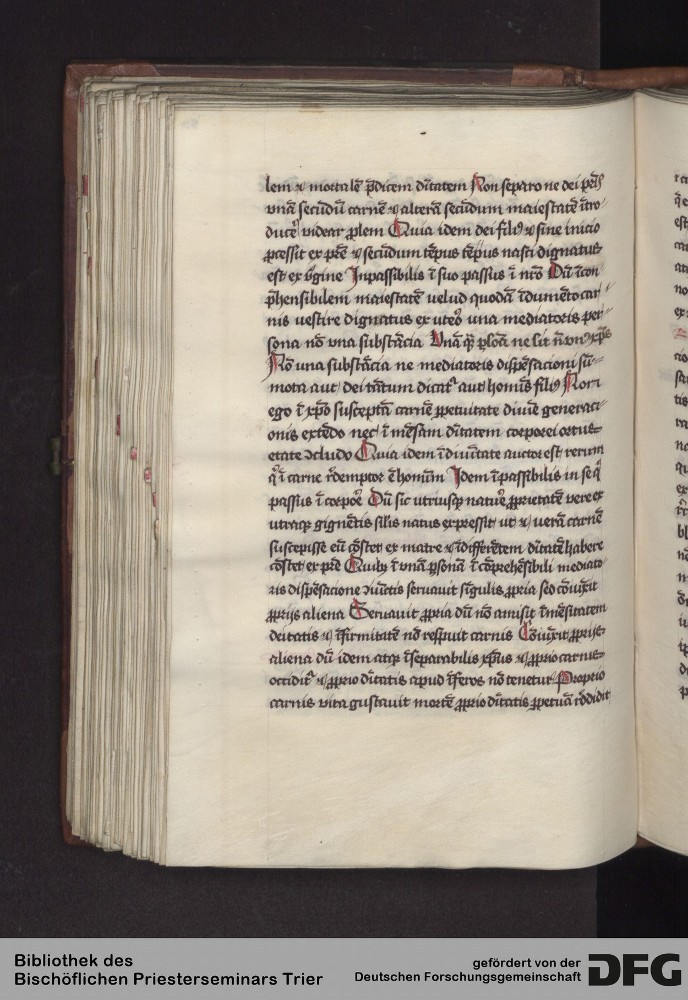 lem ⁊ mortalē p̄dicem dītatem Non separo ne dei pr̄is
vnā secūdū carnē ⁊ alterā secūdum maiestatē ītro
ducē videar ꝓlem Quia idem dei filiꝰ ⁊ sine inicio
ꝓcessit ex pr̄e ⁊ secūdum tēpus tēpus nasci dignatus
est ex v̄gine Inpassibilis ī suo passus ī nr̄o Dū īcon
p̄hensibilem maiestatē velud quodā īdumēto car
nis vestire dignatus ex uteꝰ una mediatoris per
sona nō vna substācia Vnā
Nō una substācia ne mediatoris dispēsacioni sū
mota aut dei tātum dicatᷣ aut hominis filiꝰ Nori
ego ī xp̄o susceptā carnē ꝑpetuitate diuīe generaci
onis extēdo nec ī mēsam dītatem corporei ortus
etate ↄcludo Quia idem ī diuītate auctor est rerum
q̄ ī carne r̄demptor ē homīm Idem īpassibilis in se q̄
passus ī corpore Dū sic utriusqꝫ nature ꝓprietatē vere ex
utraqꝫ gignētis silis natus expressit ut ⁊ uerā carnē
suscepisse eū cōstet ex matre ⁊ īdifferētem dītatē habere
cōstet ex pr̄e Quibꝫ ī vnā ꝑsonā ī cōprehēsibili mediato
ris dispēsacione iūctis seruauit sīgulis ꝓpria seo cōiūxit
ꝓprijs aliena Seruauit ꝓpria dū nō amisit īmēsitatem
deitatis ⁊ īfirmitatē nō respuit carnis Cōiūxit ꝓprijs
aliena dū idem atqꝫ īseparabilis xp̄us ⁊ ꝓprio carnis
occiditᷣ ⁊ ꝓprio dītatis apud īferos nō tenetur Proprio
carnis vita gustauit mortē ꝓprio dītatis ꝑpetuā r̄ddidit
Bibliothek des
Bischöflichen Priesterseminars Trier
gefördert von der
Deutschen Forschungsgemeinschaft
DFG